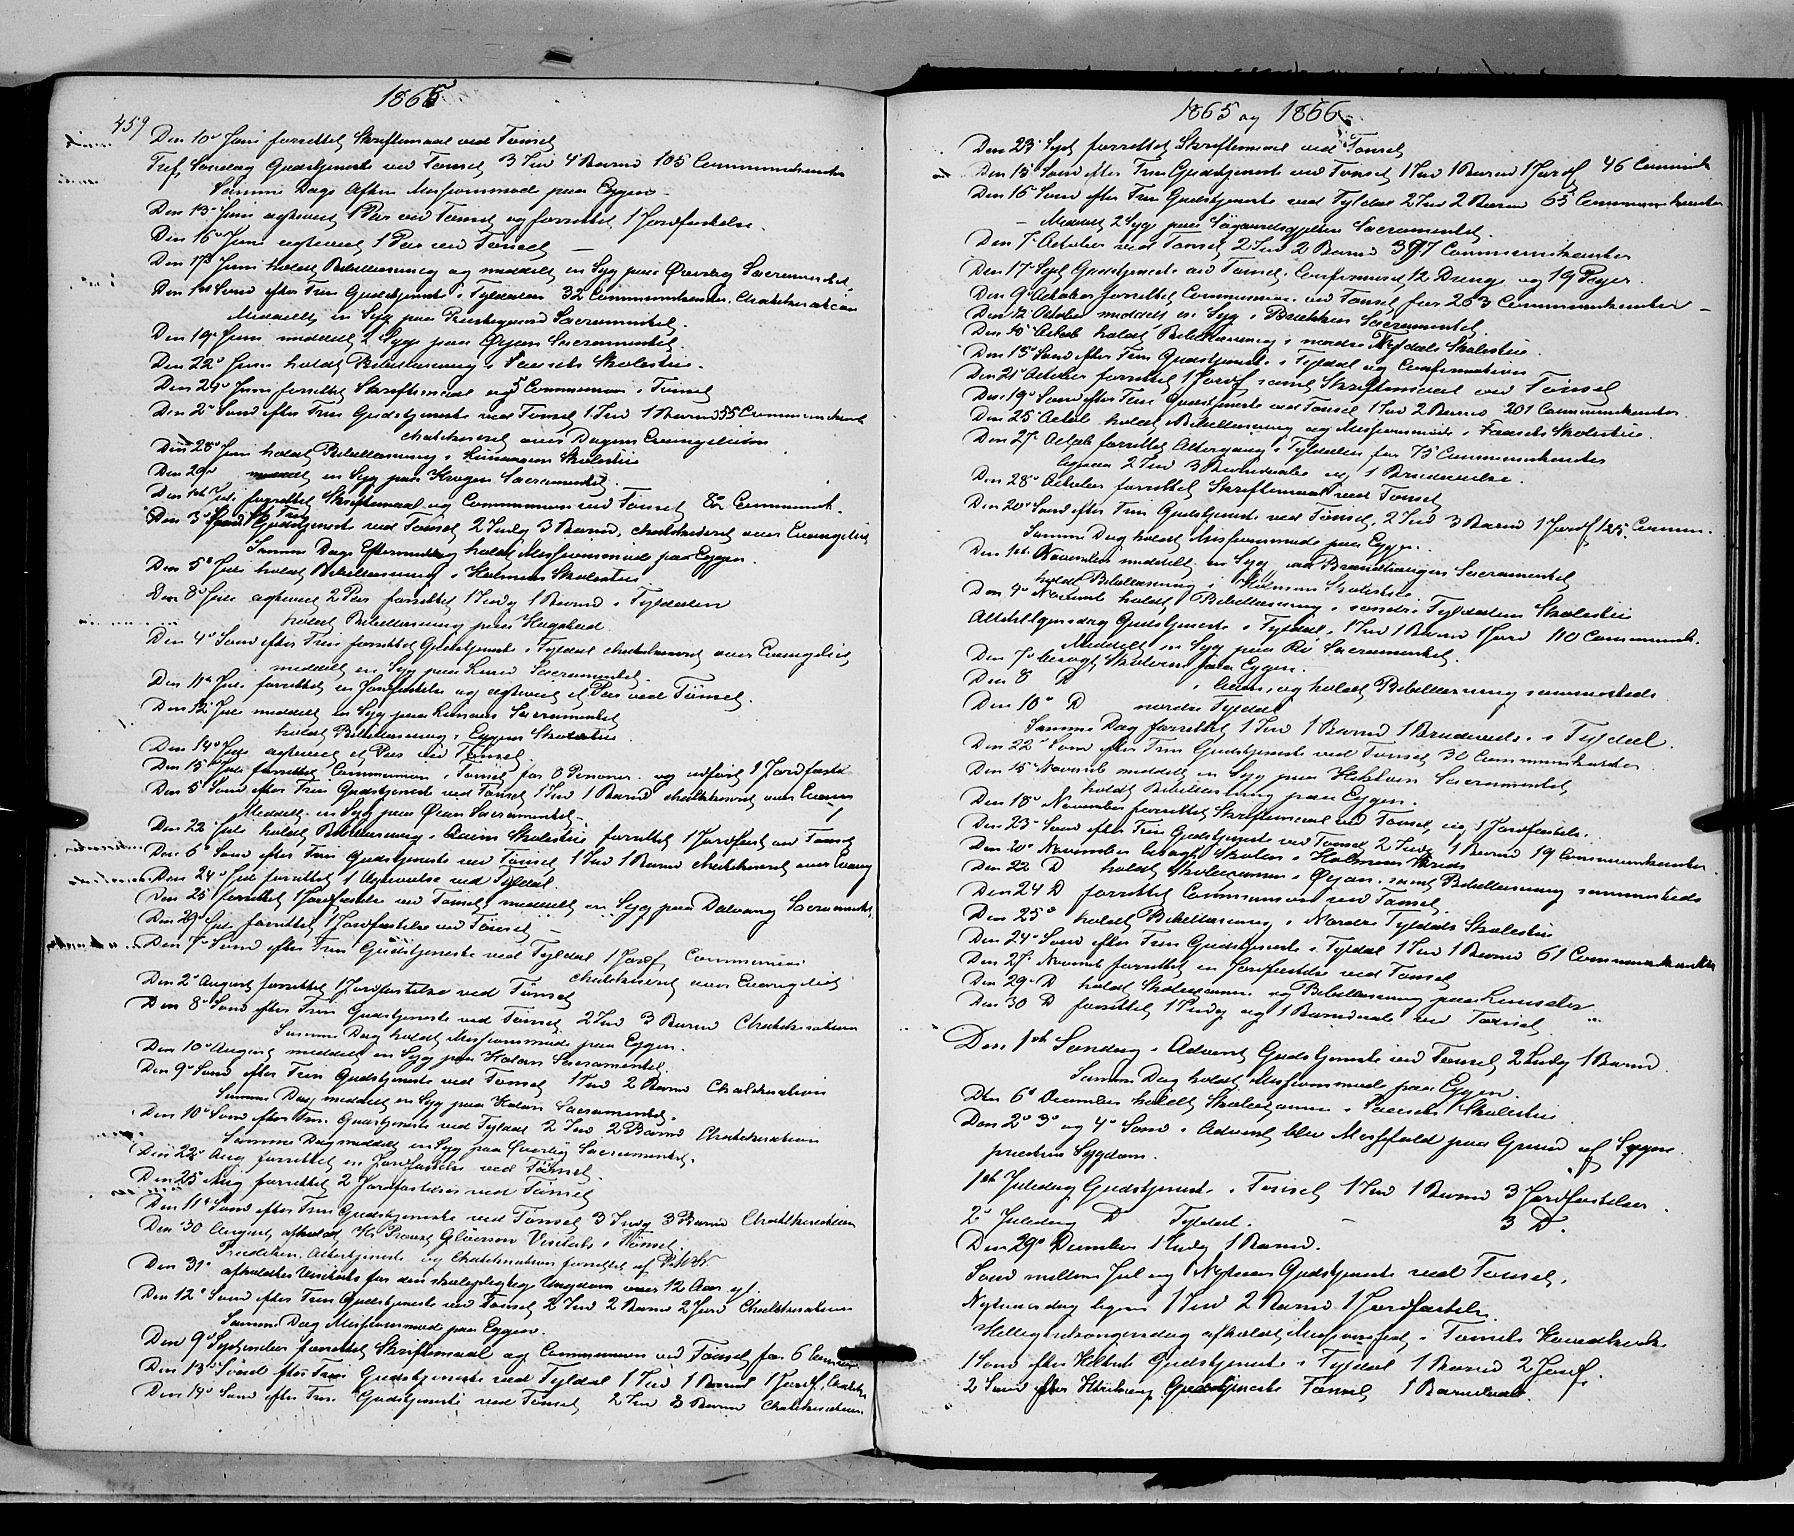 1865
459
Den 10de Juni forrettet Skriftemaal ved Tønset
Tref. Søndag Gudstjeneste ved Tønset 3 Ind 4 Barnd 105 Communikanter
Samme Dags Aften Misjonsmøde paa Eggen
Den 13de Juni ægteviet 1 Par ved Tønset og forrettet 1 Jordfæstelse.
Den 16de Juni ægteviet 1 Par ved Tønset
Den 17de Juni holdt Bibellæsning og meddelt en Syg paa Øvelsg Sacramentet
Den 1ste Sønd efter Trin Gudstjeneste i Tyldalen 32 Communikanter, Chatekisation
Meddelt en Syg paa Præstegaard Sacramentet.
Den 19de Juni meddelt 2 Syge paa Øyan Sacramentet
Den 22de Juni holdt Bibellæsning i Faasets Skolestue.
Den 24de Juni forrettet Skriftemaal og 5 Communion i Tønset
Den 2den Sønd efter Trin Gudstjeneste ved Tønset 1 Ind 1 Barnd 55 Communikant
chatekiseret over Dagens Evangelium
Den 28de Juni holdt Bibellæsning i Skolestue
Den 29de meddelt en Syg paa Sacramentet.
Den 1ste Juli forrettet Skriftemaal og Communion ved Tønset Communik.
Den 3de Sønd ef Trin Gudstjeneste ved Tønset 2 Indg 3 Barnd, chatekiseret over Evangeliet
Samme Dags Eftermiddag holdt Misjonsmøde paa Eggen.
Den 5te Juli holdt Bibellæsning i Holmens Skolestue
Den 8de Juli ægteviet 2 Par forrettet 1 Indg 1 Barnd i Tyldalen
holdt Bibellæsning paa
Den 4de Sønd efter Trin forrettet Gudstjeneste i Tyldal chatekiseret over Evangeliet
meddelt en Syg paa Sacramentet.
Den 11te Juli forrettet en Jordfæstelse og ægteviet et Par ved Tønset.
Den 12te Juli meddelt en Syg paa Sacramentet
holdt Bibellæsning i Eggens Skolestue
Den 14de Juli ægteviet et Par ved Tønset.
Den 15de Juli forrettet Communion i Tønset for 8 Personer og udført 1 Jordfæst
Den 5te Sønd efter Trin Gudstjeneste ved Tønset 1 Ind 1 Barnd chatekiseret over Evang
Meddelt en Syg paa Øian Sacramentet
Den 22de Juli holdt Bibellæsning i Skolestue forrettet 1 Jordfæst ved Tønset
Den 6te Sønd efter Trin Gudstjeneste ved Tønset 1 Ind 1 Barnd chatekiseret over Evang
Den 24de Juli forrettet 1 Ægtevielse ved Tyldal
Den 25 forrettet 1 Jordfæstelse ved Tønset, meddelt en Syg paa Dalvang Sacramentet
Den 29de Juli forrettet 1 Jordfæstelse ved Tønset
Den 7de Sønd efter Trin Gudstjeneste ved Tyldal 1 Jordf, Communion
chatekiseret over Evangeliet
Den 2den August forrettet 1 Jordfæstelse ved Tønset
Den 8de Sønd efter Trin Gudstjeneste ved Tønset 2 Ind 3 Barnd Chatekisation
Samme Dag holdt Misjonsmøde paa Eggen.
Den 10de August meddelt en Syg paa Sacramentet.
Den 9de Sønd efter Trin Gudstjeneste ved Tønset 1 Ind 2 Barnd Chatekisation
Samme Dag meddelt en Syg paa Sacramentet.
Den 10de Sønd efter Trin. Gudstjeneste ved Tyldal 2 Ind 2 Barnd Chatekisation
Samme Dag meddelt en Syg paa Sacramentet.
Den 22de Aug forrettet en Jordfæstelse ved Tønset.
Den 25de Aug forrettet 2 Jordfæstelser ved Tønset
Den 11te Sønd efter Trin Gudstjeneste ved Tønset 3 Indg 3 Barnd Chatekisation
Den 30 August afholdt Hr Provst Gløersen Visitats i Tønset.
Prædiken, Altertjeneste og Chatekisation forrettet af
Den 31te afholdtes Visitats for den skolepligtige Ungdom over 12 Aar gl.
Den 12te Sønd efter Trin Gudstjeneste ved Tønset 2 Ind 2 Barnd 2 Jord Chatekisation
Samme Dag Misjonsmød paa Eggen.
Den 9de September forrettet Skriftemaal og Communion ved Tønset for 6
Den 13de Sønd efter Trin Gudstjeneste ved Tyldal 1 Ind 1 Barnd 1 Jordf, Chatek
Den 14de Sønd efter Trin. Gudstjeneste ved Tønset 2 Ind 3 Barnd Chatekisation
1865 og 1866.
Den 23de Sept forrettet Skriftemaal ved Tønset
Den 15de Sønd efter Trin Gudstjeneste ved Tønset 1 Ind 1 Barnd 1 Jordf 46 Commik
Den 16 Sønd efter Trin Gudstjeneste ved Tyldal 2 Ind 2 Barnd 63 Communikanter
– Meddelt 2 Syge paa Sacramentet.
Den 7de October ved Tønset 2 Ind 2 Barnd 397 Communikanter
Den 17 Sept Gudstjeneste ved Tønset. Confirmeret 12 Drenge og 19 Piger.
Den 9de October forrettet Communion ved Tønset for 263 Communikanter –
Den 12 October meddelt en Syg i Brækken Sacramentet
Den 15 Octob holdt Bibellæsning i nordre Tyldals Skolestue.
Den 15de Sønd efter Trin Gudstjeneste i Tyldal og Confirmation
Den 21de October forrettet 1 Jordf samt Skriftemaal ved Tønset
Den 19de Sønd efter Trin Gudstjeneste ved Tønset 1 Ind 2 Barnd 201 Communikanter.
Den 25de Octob holdt Bibellæsning og Misjonsmøde i Faasets Skolestue.
Den 27de Octob forrettet Altergang i Tyldalen for 75 Communikanter
2 Ind 3 Barnedaabe og 1 Brudevielse.
Den 28de October forrettet Skriftemaal ved Tønset
Den 20de Sønd efter Trin Gudstjeneste ved Tønset, 2 Ind 3 Barnd 1 Jordf 125 Commun.
Samme Dag holdt Misjonsmøde paa Eggen.
Den 1ste November meddelt en Syg ved Sacramentet
holdt Bibellæsning i Holmens Skolestue
Den 4de Novemb holdt Bibellæsning i søndre Tyldalens Skolestue
Allehelgensdag Gudstjeneste i Tyldal, 1 Ind 1 Barnd 1 Jord 110 Communik.
Meddelt en Syg paa Sacramentet.
Den 7de besøgt Skolen paa Eggen.
Den 8 D i Aaen, og holdt Bibellæsning sammesteds.
Den 10de D nordre Tyldal
Samme Dag forrettet 1 Ind 1 Barnd 1 Brudevielse i Tyldal.
Den 22de Sønd efter Trin Gudstjeneste ved Tønset 30 Communikanter
Den 15de Novemb meddelt en Syg paa Sacramentet
holdt Bibellæsning paa Eggen.
Den 18de November forrettet Skriftemaal ved Tønset, og 1 Jordfæstelse.
Den 23de Sønd efter Trin Gudstjeneste ved Tønset 2 Indg 1 Barnd 19 Communikanter.
Den 20de November besøgt Skolen i Holmens Kreds
Den 22 D holdt Skoleexamen i Øyan. samt Bibellæsning sammesteds
Den 24 D forrettet Communion ved Tønset.
Den 25de holdt Bibellæsning i Nordre Tyldals Skolestue
Den 24de Sønd efter Trin Gudstjeneste i Tyldal 1 Ind 1 Barnd 61 Communikanter
Den 27de Novemb forrettet en Jordfæstelse ved Tønset
Den 29de D holdt Skoleexamen og Bibellæsning paa
Den 30 D forrettet 1 Indg og 1 Barnedaab ved Tønset
Den 1ste Søndag i Advent Gudstjeneste ved Tønset 2 Indg 1 Barnd.
Samme Dag holdt Misjonsmøde paa Eggen.
Den 6te December holdt Skoleexamen i Faasets Skolestue
Den 2den 3de og 4de Sønd i Advent blev Messefald paa Grund af Sogne
præstens Sygdom.
1ste Juledag Gudstjeneste i Tønset 1 Ind 1 Barnd 3 Jordfæstelser.
2den Juledag D Tyldal. – 3 D.
Den 29de December 1 Indg 1 Barnd.
Sønd mellem Jul og Nytaar Gudstjeneste ved Tønset.
Nytaarsdag ligesaa 1 Ind 2 Barnd 1 Jordfæstelse.
Helligtrekongersdag afholdt Misjonsfest i Tønsets Hovedkirke
1 Sønd efter Helltrek Gudstjeneste i Tyldal 1 Barnd 2 Jordf.
2 Sønd efter Gudstjeneste Tønset 1 Barnedaab.